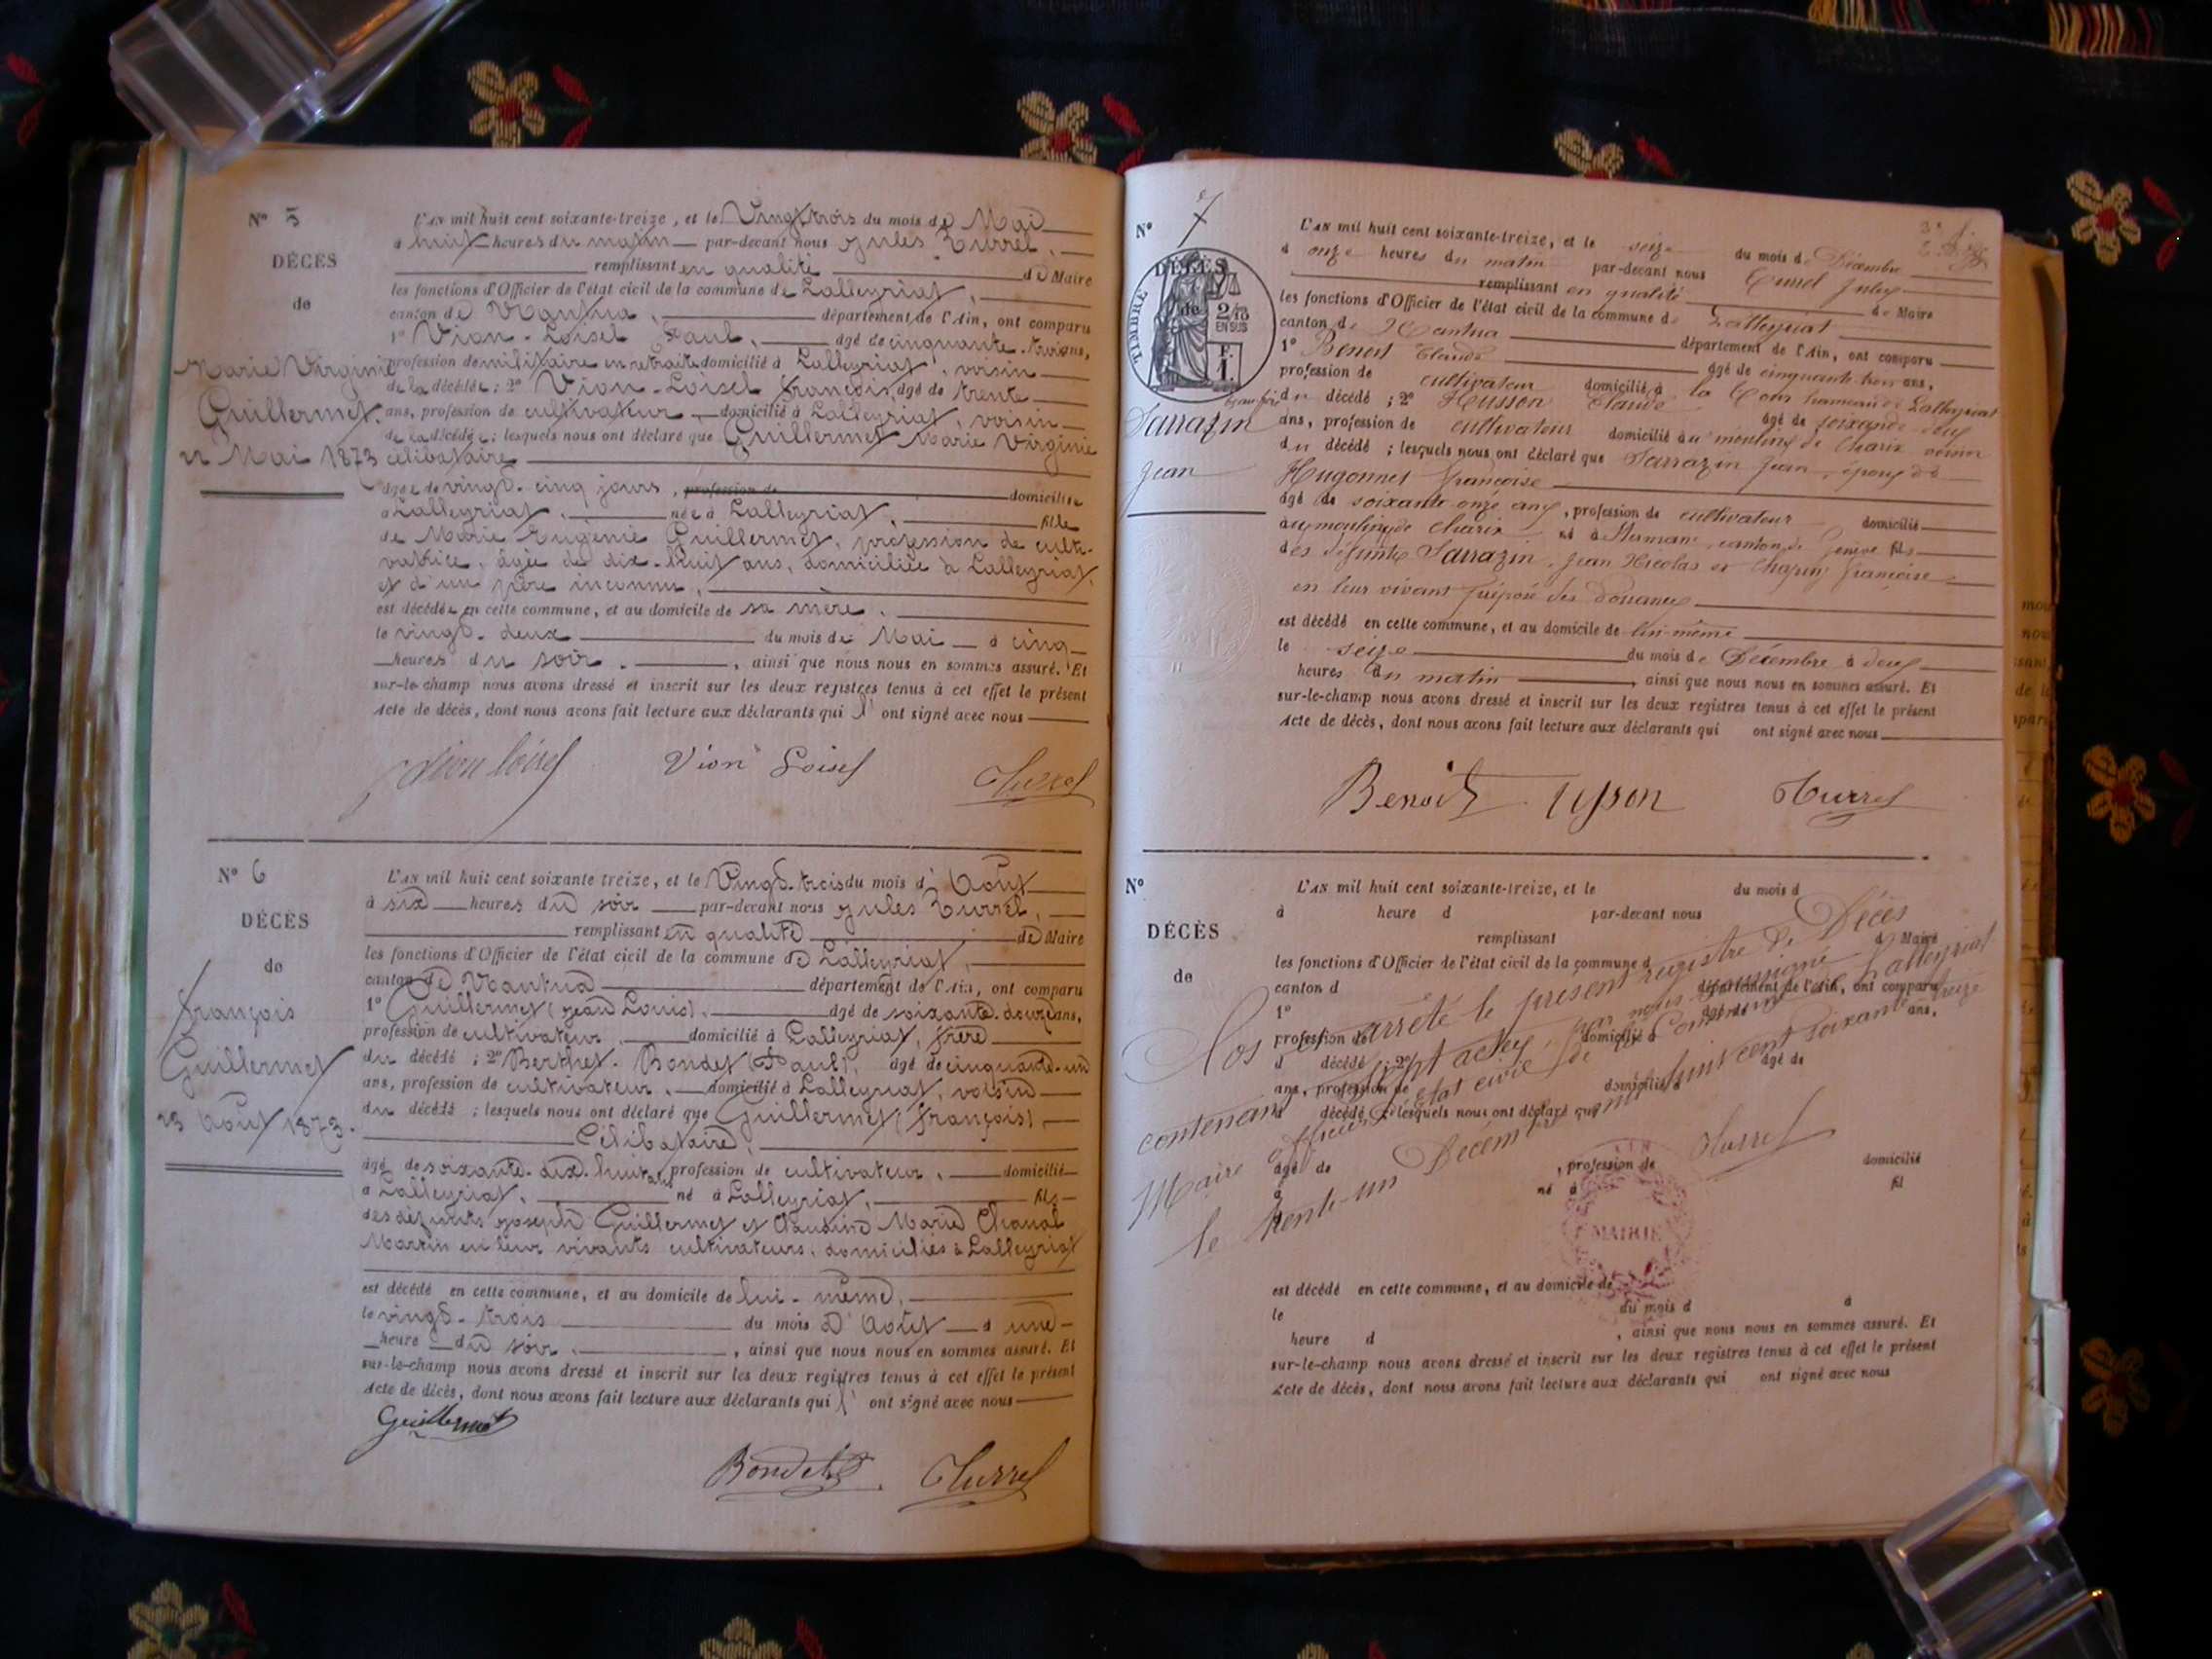 N° 5
DÉCÈS
de
Marie Virginie
Guillermet.
22 Mai 1873
L'AN mil huit cent soixante-treize, et le Vingt trois du mois de Mai
à huit heures du matin par-devant nous Jules Turrel,
remplissant en qualité de Maire
les fonctions d'Officier de l'état civil de la commune de Lalleyriat,
canton de Nantua, département de l'Ain, ont comparu
1° Vion-Loisel Paul, âgé de cinquante-trois ans,
profession de militaire en retraite domicilié à Lalleyriat, voisin
de la décédée ; 2° Vion-Loisel François, âgé de trente
ans, profession de cultivateur, domicilié à Lalleyriat, voisin
de la décédée ; lesquels nous ont déclaré que Guillermet Marie Virginie
célibataire
âgée de vingt-cinq jours, profession de domiciliée
à Lalleyriat, née à Lalleyriat, fille
de Marie Eugénie Guillermet, profession de culti-
vatrice, âgée de dix-huit ans, domiciliée à Lalleyriat,
et d'un père inconnu,
est décédée en cette commune, et au domicile de sa mère,
le vingt-deux du mois de Mai à cinq
heures du soir, ainsi que nous nous en sommes assuré. Et
sur-le-champ nous avons dressé et inscrit sur les deux registres tenus à cet effet le présent
Acte de décès, dont nous avons fait lecture aux déclarants qui l' ont signé avec nous
Vion loisel Vion Loisel Turrel
N° 6
DÉCÈS
de
François
Guillermet
23 Août 1873.
L'AN mil huit cent soixante treize, et le Vingt-trois du mois d'Août
à six heures du soir par-devant nous Jules Turrel,
remplissant en qualité de Maire
les fonctions d'Officier de l'état civil de la commune de Lalleyriat,
canton de Nantua département de l'Ain, ont comparu
1° Guillermet (Jean Louis), âgé de soixante-douze ans,
profession de cultivateur, domicilié à Lalleyriat, frère
du décédé ; 2° Berthet-Bondet (Paul), âgé de cinquante-un
ans, profession de cultivateur, domicilié à Lalleyriat, voisin
du décédé ; lesquels nous ont déclaré que Guillermet (François)
Célibataire,
âgé de soixante-dix-huit ans, profession de cultivateur, domicilié
à Lalleyriat, né à Lalleyriat, fils
des défunts Joseph Guillermet et Claudine Marie Chanal
Martin en leur vivants cultivateurs, domiciliés à Lalleyriat
est décédé en cette commune, et au domicile de lui-même,
le vingt-trois du mois d'Août à une
heure du soir, ainsi que nous nous en sommes assuré. Et
sur-le-champ nous avons dressé et inscrit sur les deux registres tenus à cet effet le présent
Acte de décès, dont nous avons fait lecture aux déclarants qui l' ont signé avec nous
Guillermet
Bondet Turrel
N° 7
DÉCÈS
de
TIMBRE
2/10
EN SUS
F.
1.
Sarrazin
Jean
L'AN mil huit cent soixante-treize, et le seize du mois de Décembre
à onze heures du matin par-devant nous Turrel Jules
remplissant en qualité de Maire
les fonctions d'Officier de l'état civil de la commune de Lalleyriat
canton de Nantua département de l'Ain, ont comparu
1° Benoit Claude âgé de cinquante trois ans,
profession de cultivateur domicilié à la Cour hameau de Lalleyriat
beau-frère du décédé ; 2° Husson Claude âgé de soixante deux
ans, profession de cultivateur domicilié au moulin de Charix voisin
du décédé ; lesquels nous ont déclaré que Sarrazin Jean, époux de
Hugonnet Françoise
âgé de soixante onze ans, profession de cultivateur domicilié
au moulin de Charix né à canton de Genève fils
des défunts Sarrazin Jean Nicolas et Françoise
en leur vivant préposé des Douanes
est décédé en cette commune, et au domicile de lui-même
le seize du mois de Décembre à deux
heures du matin, ainsi que nous nous en sommes assuré. Et
sur-le-champ nous avons dressé et inscrit sur les deux registres tenus à cet effet le présent
Acte de décès, dont nous avons fait lecture aux déclarants qui ont signé avec nous
Benoit Usson Turrel
N°
DÉCÈS
de
L'AN mil huit cent soixante-treize, et le du mois d
à heure d par-devant nous
remplissant d Maire
les fonctions d'Officier de l'état civil de la commune d
canton d département de l'Ain, ont comparu
1° âgé de ans,
profession de domicilié à
d décédé ; 2° âgé de
ans, profession de domicilié à
d décédé ; lesquels nous ont déclaré que
âgé de , profession de domicilié
à né à fil
est décédé en cette commune, et au domicile de
le du mois d à
heure d , ainsi que nous nous en sommes assuré. Et
sur-le-champ nous avons dressé et inscrit sur les deux registres tenus à cet effet le présent
Acte de décès, dont nous avons fait lecture aux déclarants qui ont signé avec nous
Clos et arrêté le présent registre de Décès
contenant sept actes par nous soussigné
Maire officier de l'état civil de la Commune de Lalleyriat
le trente-un Décembre mil huit cent soixante treize
Turrel
MAIRIE